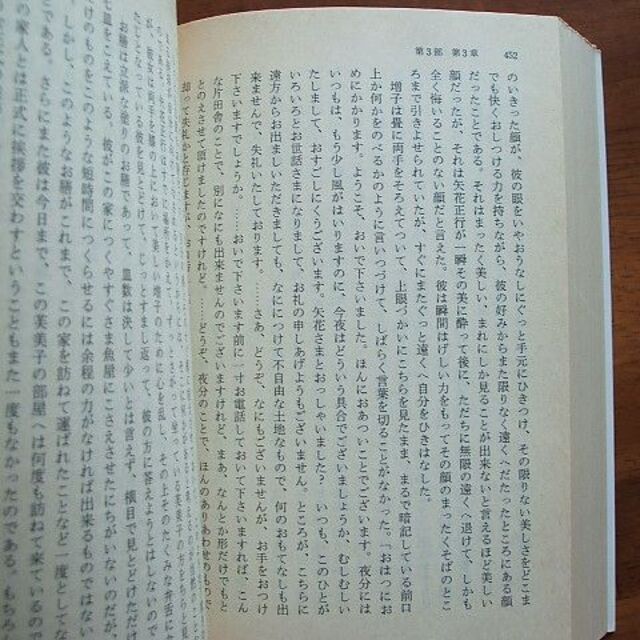 第3部 第3章 452
のいきった顔が、彼の眼をいやおうなしにぐっと手元にひきつけ、その限りない美しさをどこま
でも快くおしつける力を持ちながら、彼の好みからまた限りなく遠くへだたったところにある顔
だったことである。それはまったく美しい、まれにしか見ることが出来ないと言えるほど美しい
顔だったが、それは矢花正行が一瞬その美に酔って後に、ただちに無限の遠くへ退けて、しかも
全く悔いることのない顔だと言えた。彼は瞬間はげしい力をもってその顔のまったくそばのとこ
ろまで引きよせられていたが、すぐにまたぐっと遠くへ自分をひきはなした。
増子は畳に両手をそろえてついて、上眼づかいにこちらを見たまま、まるで暗記している前口
上か何かをのべるかのように言いつづけて、しばらく言葉を切ることがなかった。「おはつにお
めにかかります。ようこそ、おいで下さいました。ほんにおあついことでございます。夜分には
いつもは、もう少し風がはいりますのに、今夜はどういう具合でございましょうか、むしむしい
たしまして、おすごしにくうございます。矢花さまとおっしゃいました? いつも、このひとが
いろいろとお世話さまになりまして、お礼の申しあげようもございません。ところが、こんな
遠方からお出ましいただきましても、なににつけて不自由な土地なもので、何のおもてなしも出
来ませんで、失礼いたしております。……さあ、どうぞ、なにもございませんが、お手をおつけ
下さいますでしょうか。……おいで下さいます前に一寸お電話しておいて下さいますれば、こん
な片田舎のことで、別になにも出来ませんのでございますけれど、まあ、なんとか形だけでもと
とのえさせて頂けましたのですけれど、……どうぞ、夜分のことで、ほんのありあわせのもので
却って失礼かと存じますが、
が、彼女は両手を膝の上において美しい増子のために心を乱し、その上そのたくみな弁舌に
たじとなっている彼を見とどけて、じっとすまし返って、彼の方に答えようとはしないので
お膳は立派な塗りのお膳であって、皿数は決して少いとは言えず、横目で見とどけただけ
七皿をこえている。彼がこの家につくやすぐさま魚屋にこさえさせたにちがいないのだが、
だけのものをこのような短時間につくらせるには余程の力がなければ出来るものではない
しかし、このようなお膳がこれまで、この家を訪ねて運ばれたことなど一度としてな
である。さらにまた彼は今日まで、この芙美子の部屋へは何度も訪ねて来ているので
の家人とは正式に挨拶を交わすということもまた一度もなかったのである。もちろ